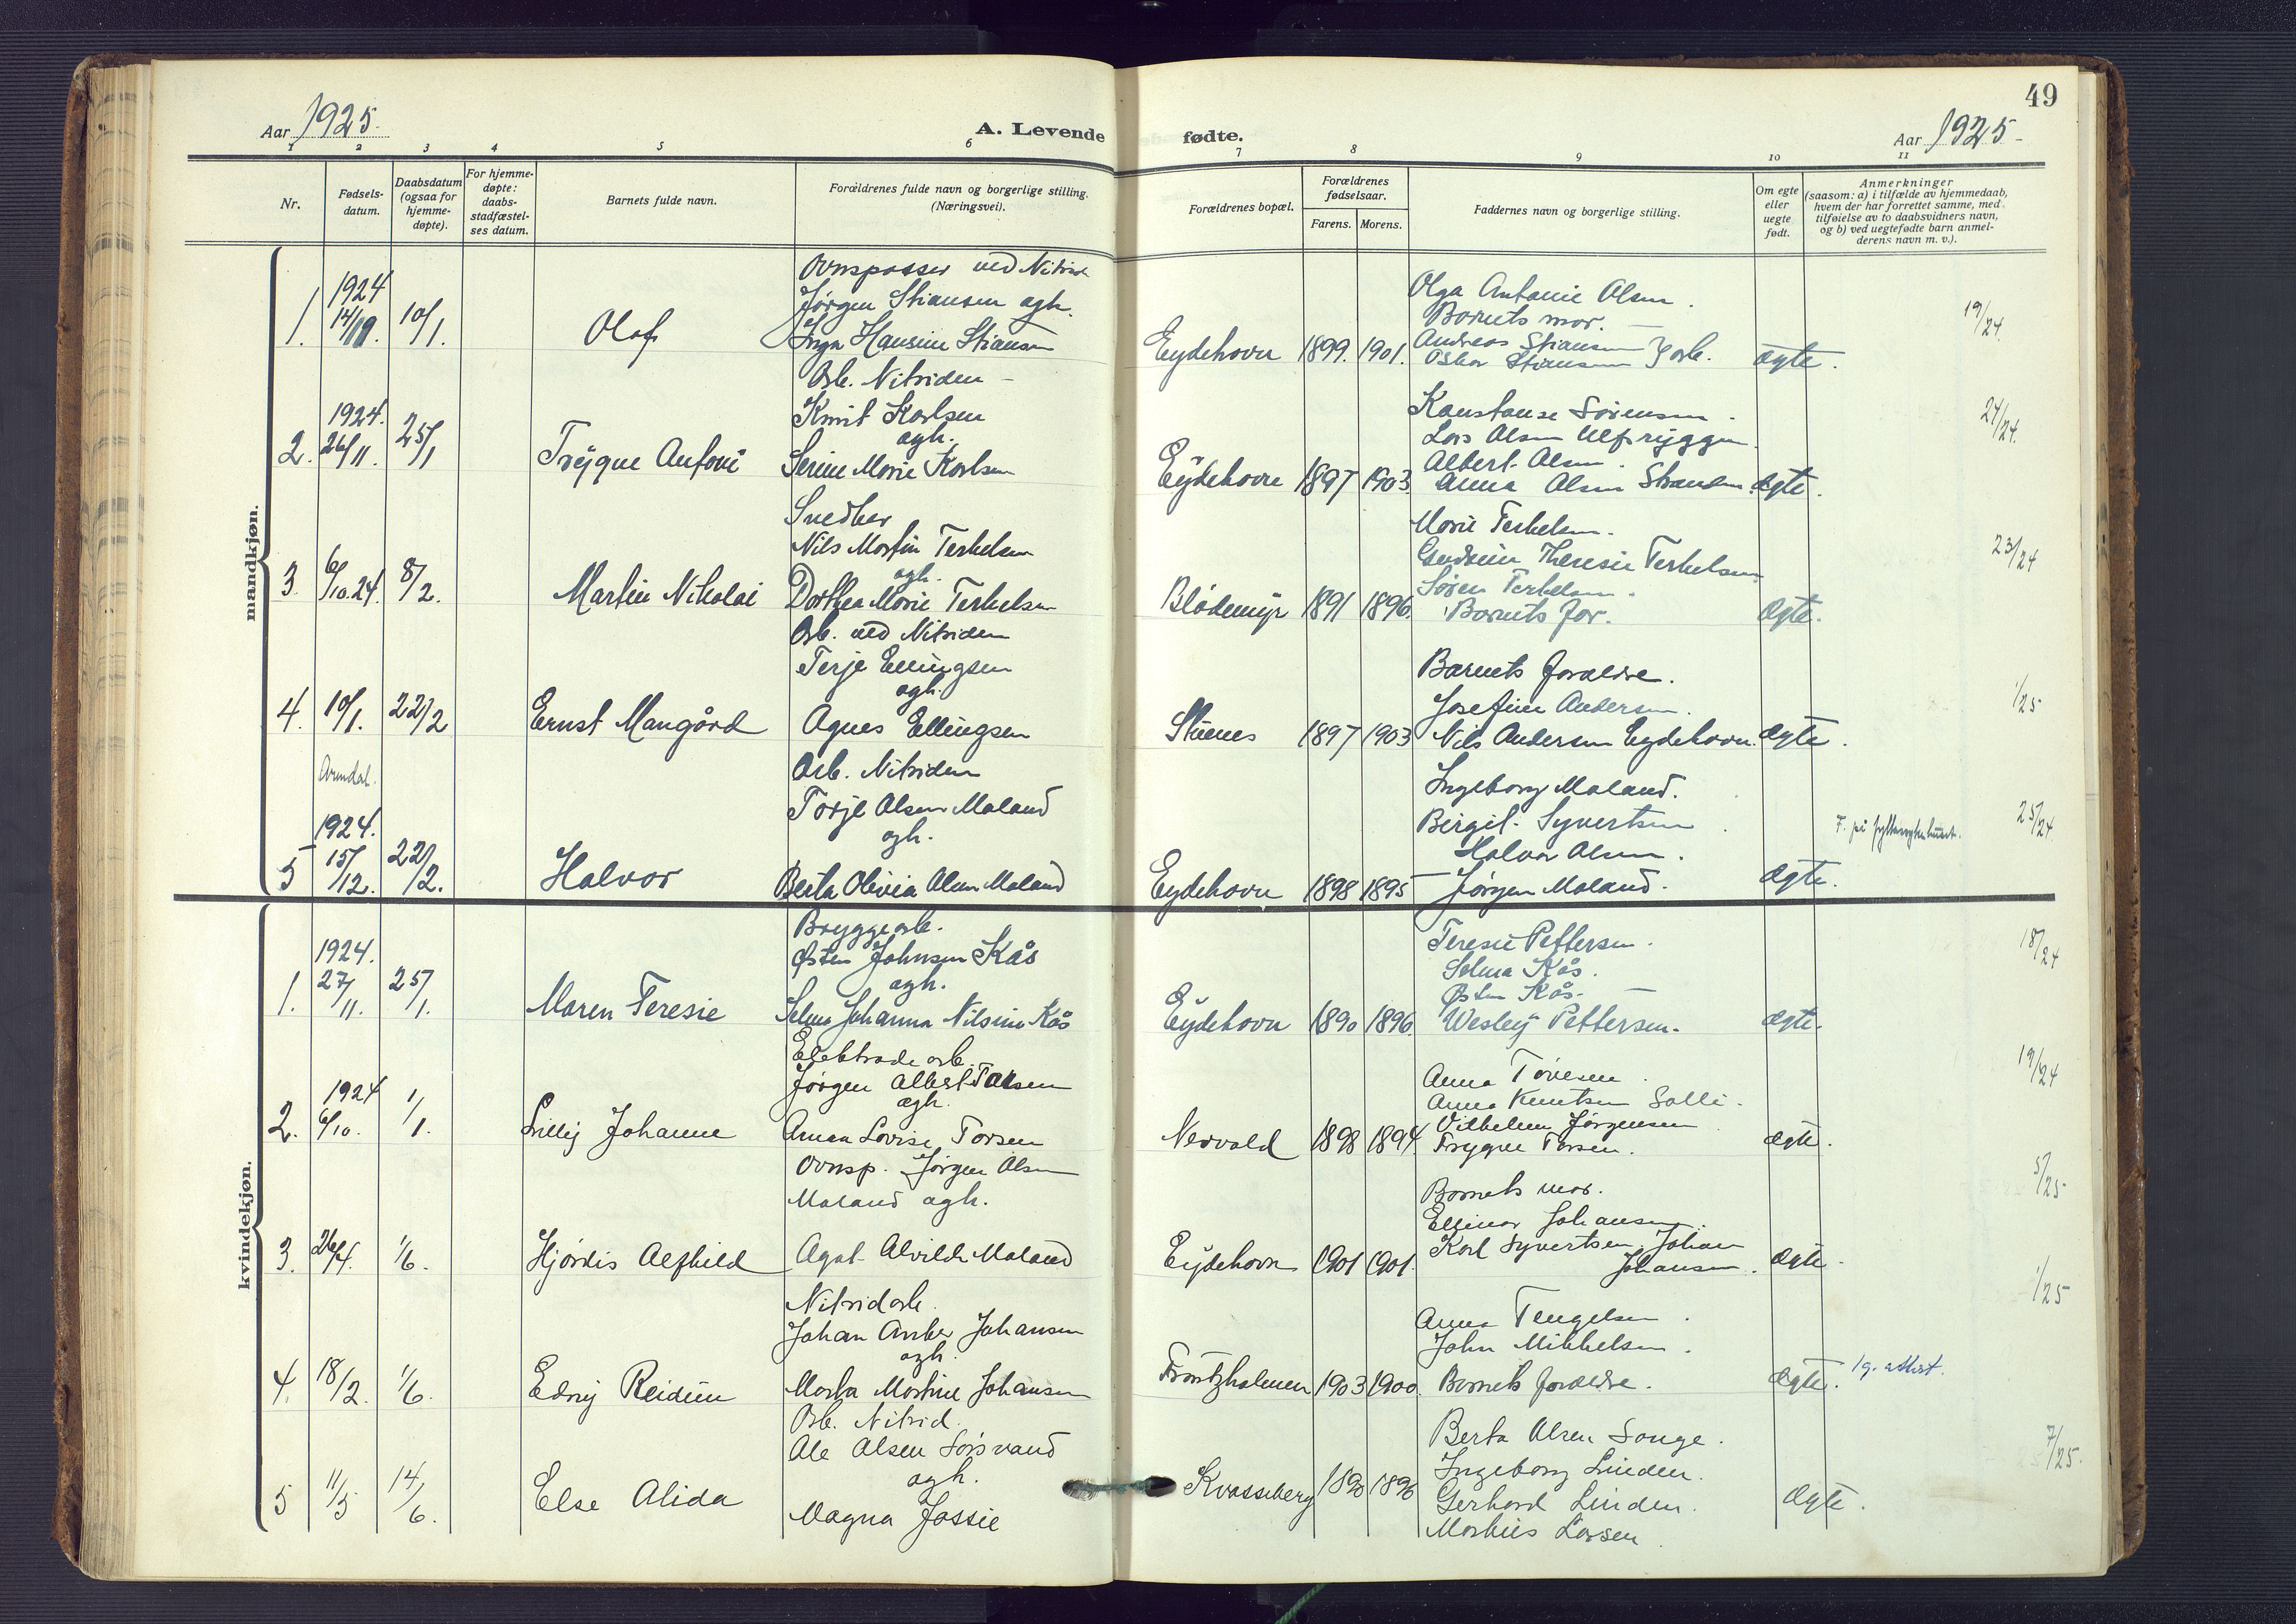 49
Aar 1925.
A. Levende fødte.
Aar 1925
1 2 3 4 5 6 7 8 9 10 11
Nr.
Fødsels-
datum.
Daabsdatum
(ogsaa for
hjemme-
døpte).
For hjemme-
døpte:
daabs-
stadfæstel-
ses datum.
Barnets fulde navn.
Forældrenes fulde navn og borgerlige stilling.
(Næringsvei).
Forældrenes bopæl.
Forældrenes
fødselsaar.
Farens. Morens.
Faddernes navn og borgerlige stilling.
Om egte
eller
uegte
født.
Anmerkninger
(saasom: a) i tilfælde av hjemmedaab,
hvem der har forrettet samme, med
tilføielse av to daabsvidners navn,
og b) ved uegtefødte barn anmel-
derens navn m. v.).
mandkjøn.
1. 1924 10/1. Olaf
Ovnspasser ved
Jørgen Stiansen ogh.
Inga Hansine Stiansen
Eydehavn 1899. 1901.
Olga Antonie Olsen.
Barnets mor.
Andreas Stiansen
Oskar Stiansen arb.
ægte.
19/24.
2. 1924. 26/11. 25/1 Trygve Antoni
Arb. Nitriden
Knut Karlsen
ogh.
Serine Marie Karlsen
Eydehavn 1897 1903
Konstanse Sørensen.
Lars Olsen
Albert Olsen.
Anna Olsen
ægte.
24/24.
3. 6/10.24. 8/2. Martin Nikolai
Snedker
Nils Martin Terkelsen
ogh.
Dorthea Marie Terkelsen
Blødemyr 1891 1896.
Marie Terkelsen.
Theresie Terkelsen
Søren Terkelsen.
Barnets far.
ægte.
23/24
4. 10/1. 22/2 Ernst Mangård
Arb. ved Nitriden
Terje Ellingsen
ogh.
Agnes Ellingsen
Stuenes 1897 1903
Barnets foreldre.
Josefine Andersen.
Nils Andersen Eydehavn.
ægte.
1/25
Arendal.
5 1924. 15/12. 22/2. Halvor
Arb. Nitriden
Torje Olsen Maland
ogh.
Berta Olivia Olsen Maland
Eydehavn 1898 1895
Ingeborg Maland.
Birgit Syvertsen
Halvor Olsen.
Jørgen Maland.
ægte.
F. på
25/24
kvindekjøn.
1. 1924. 27/11. 25/1. Maren Teresie
Bryggearb.
Østen Johnsen Kås
ogh.
Selma Johanna Nilsine Kås
Eydehavn 1890 1896.
Teresie Pettersen.
Selma Kås.
Østen Kås.
Wesley Pettersen.
ægte.
18/24
2. 1924 6/10. 1/1. Lilly Johanne
Elektrode arb.
Jørgen Albert Torsen
ogh.
Anna Lovise Torsen
Nesvold 1898 1894.
Anna
Anna Knutsen
Vilhelm Jørgensen
Trygve Torsen.
ægte.
19/24
3. 26/4. 1/6. Hjørdis Alfhild
Ovnsp. Jørgen Olsen
Maland ogh.
Agat Alvilde Maland
Eydehavn 1901 1901.
Barnets mor.
Ellinor Johansen.
Karl Syvertsen, Johan
Johansen.
ægte.
5/25
4. 18/2. 1/6. Edny Reidun
Nitridarb.
Johan Anker Johansen
ogh.
Marta Martine Johansen
1903 1900.
Anna Tengelsen.
John Mikkelsen.
Barnets foreldre.
ægte.
1 g. attest.
1/25
5 11/5 14/6. Else Alida
Arb. Nitrid.
Ole Olsen Sørsvand
ogh.
Magna Jossie
Kvasseberg 1890 1896
Berta Olsen Songe.
Ingeborg Linden.
Gerhard Linden.
Larsen
ægte.
7/25.